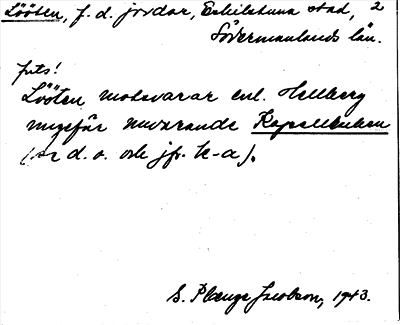 Löösen, f. d. jordar, Eskilstuna stad, 2
Södermanlands län.
Juts!
Löösen motsvarar enl. Hellberg
ungefär nuvarande Kapellbacken
(se d. o. och jfr k-a).
S. Plænge Jacobson, 1943.